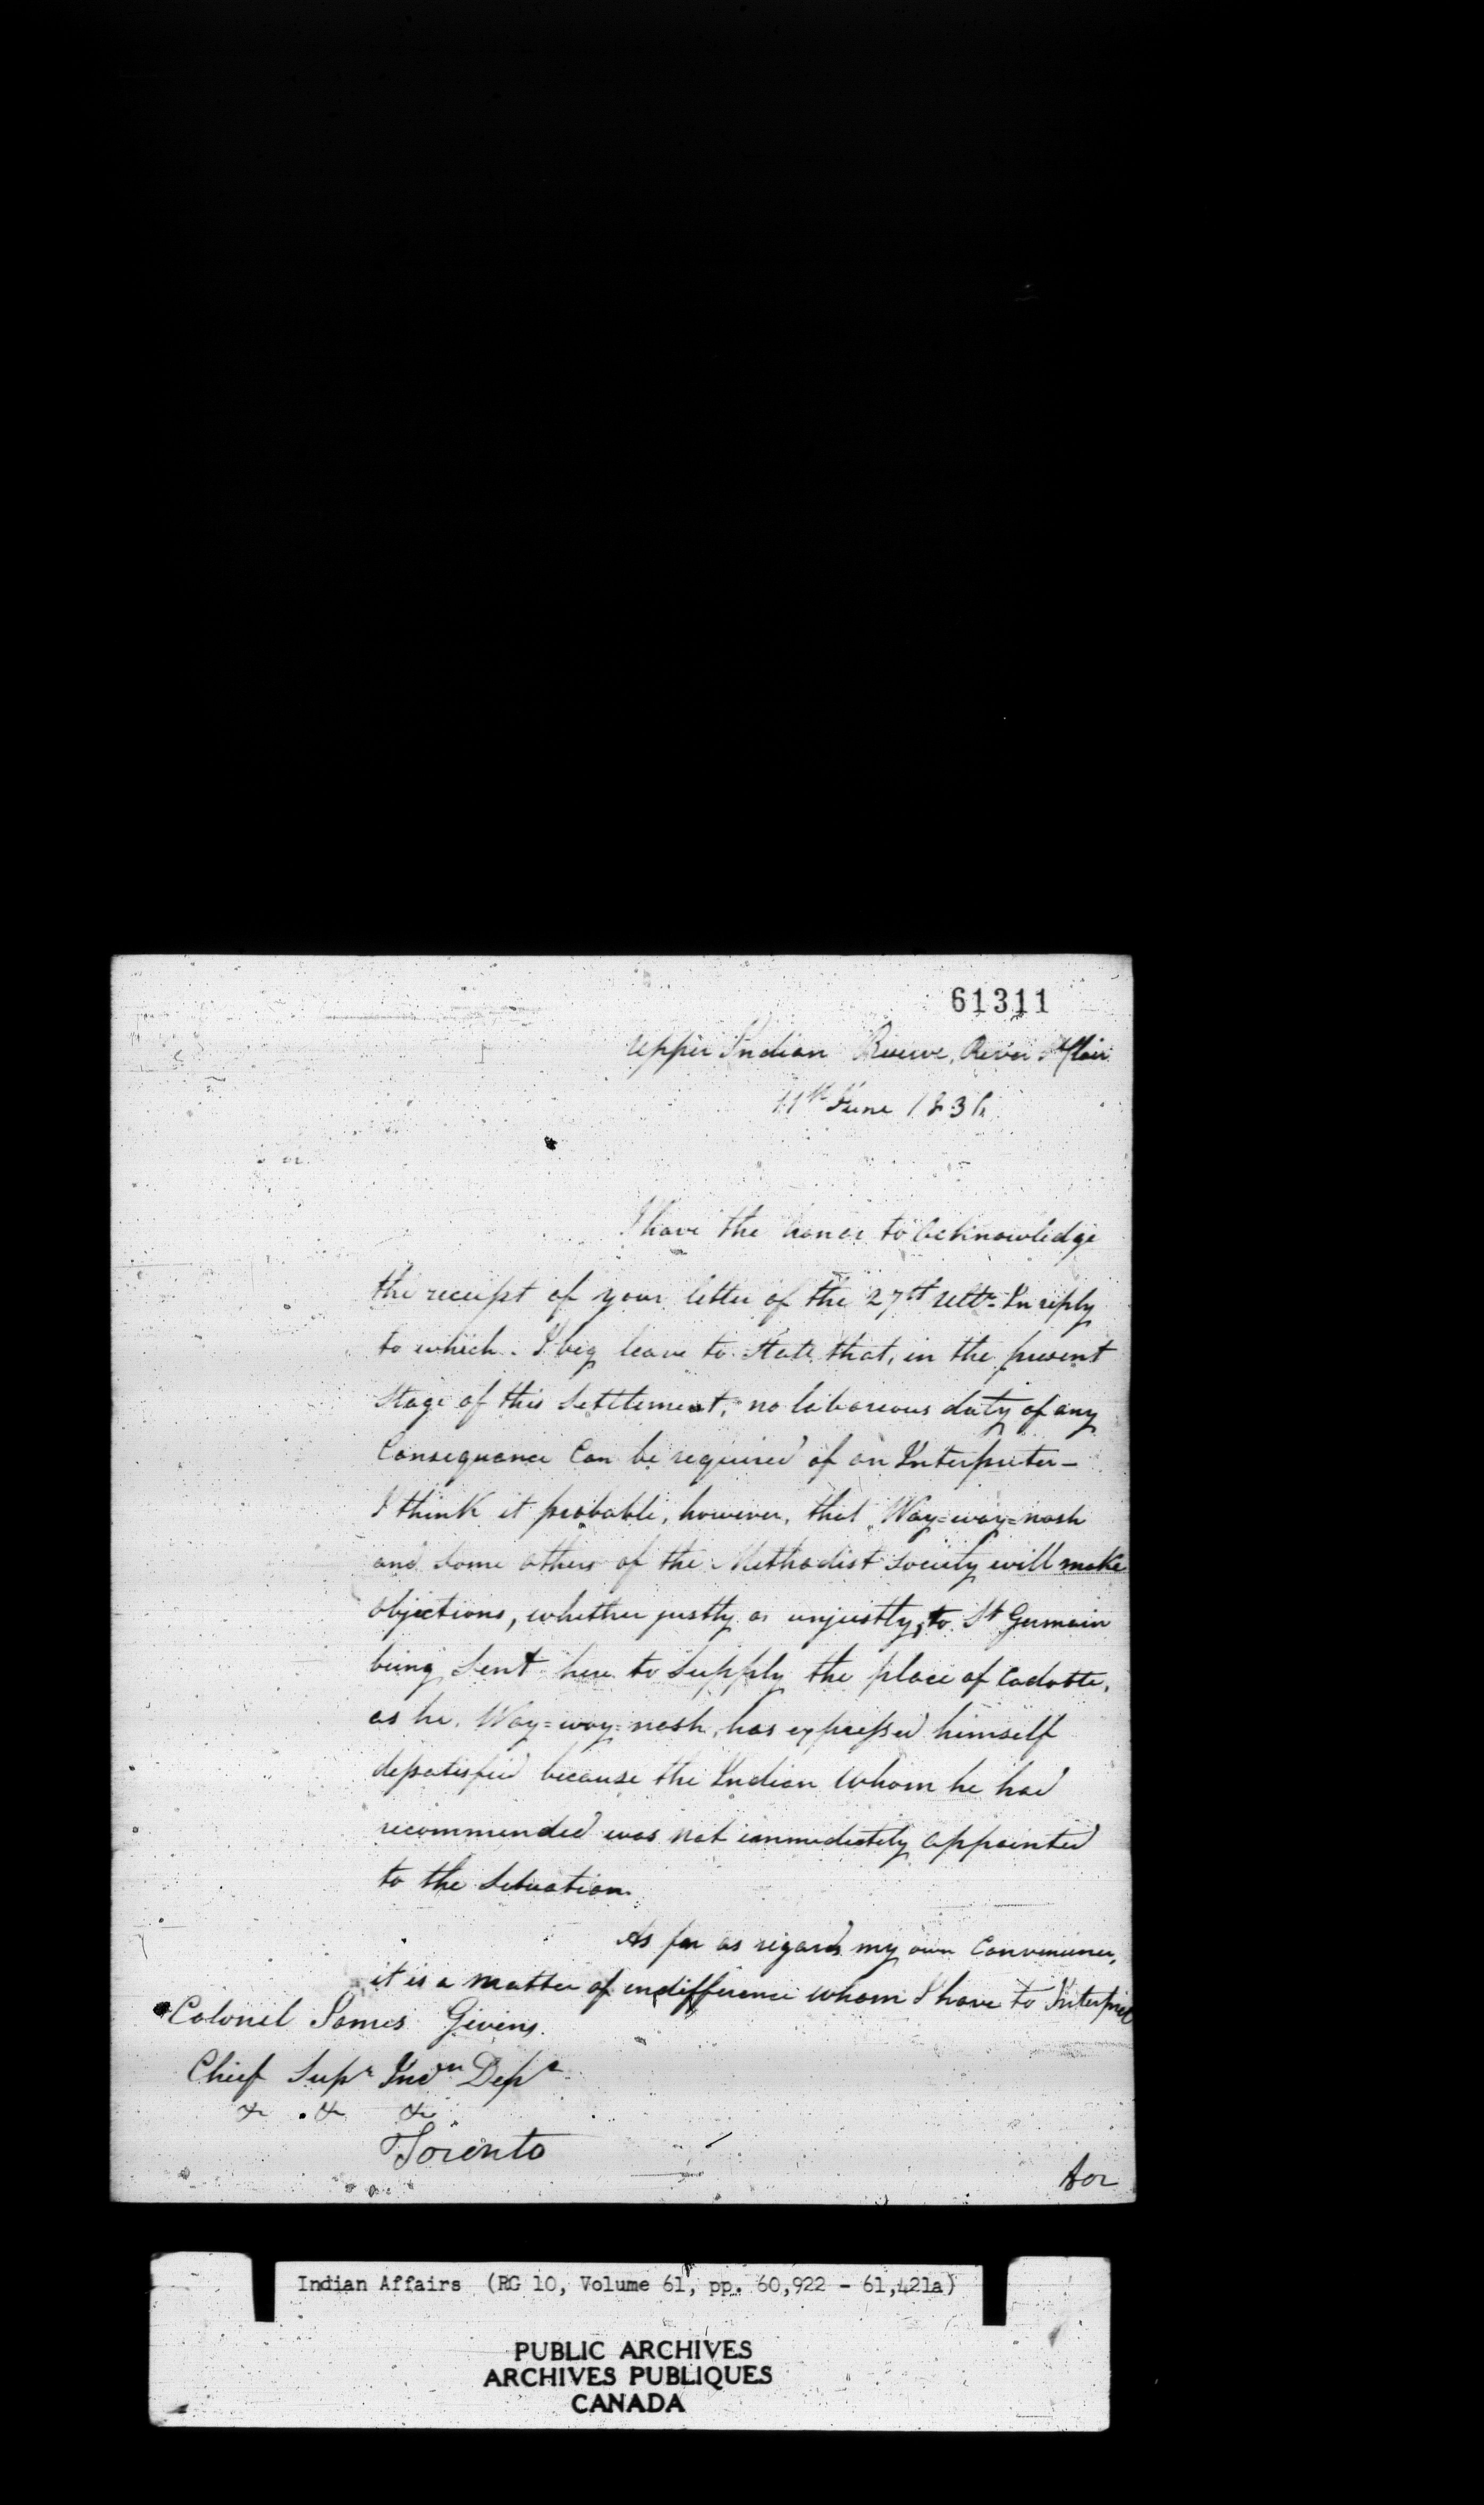 61311
Upper Indian Reserve, River St Clair
11th June 1836
I have the honor to acknowledge
the receipt of your letter of the 27th Ulto. In reply
to which. I beg leave to state that, in the present
stage of this Settlement, no laborious duty of any
Consequance Can be required of an Interpreter—
I think it probable, however, that Way=way=nosh
and some others of the Methodist Society will make
objections, whether justly or unjustly, to St Germain
being sent here to supply the place of Cadotte,
as he, Way=way=nosh, has expressed himself
dissatisfied because the Indian Whom he had
recommended was not immediately appointed
to the Situation.
As far as regards my own Convenience,
it is a matter of indifference whom I have to Interpret
Colonel James Givins.
Chief Supt Indn Dept
&c &c &c
Toronto
for
Indian Affairs (RG 10, Volume 61, pp. 60,922 - 61,421a)
PUBLIC ARCHIVES
ARCHIVES PUBLIQUES
CANADA